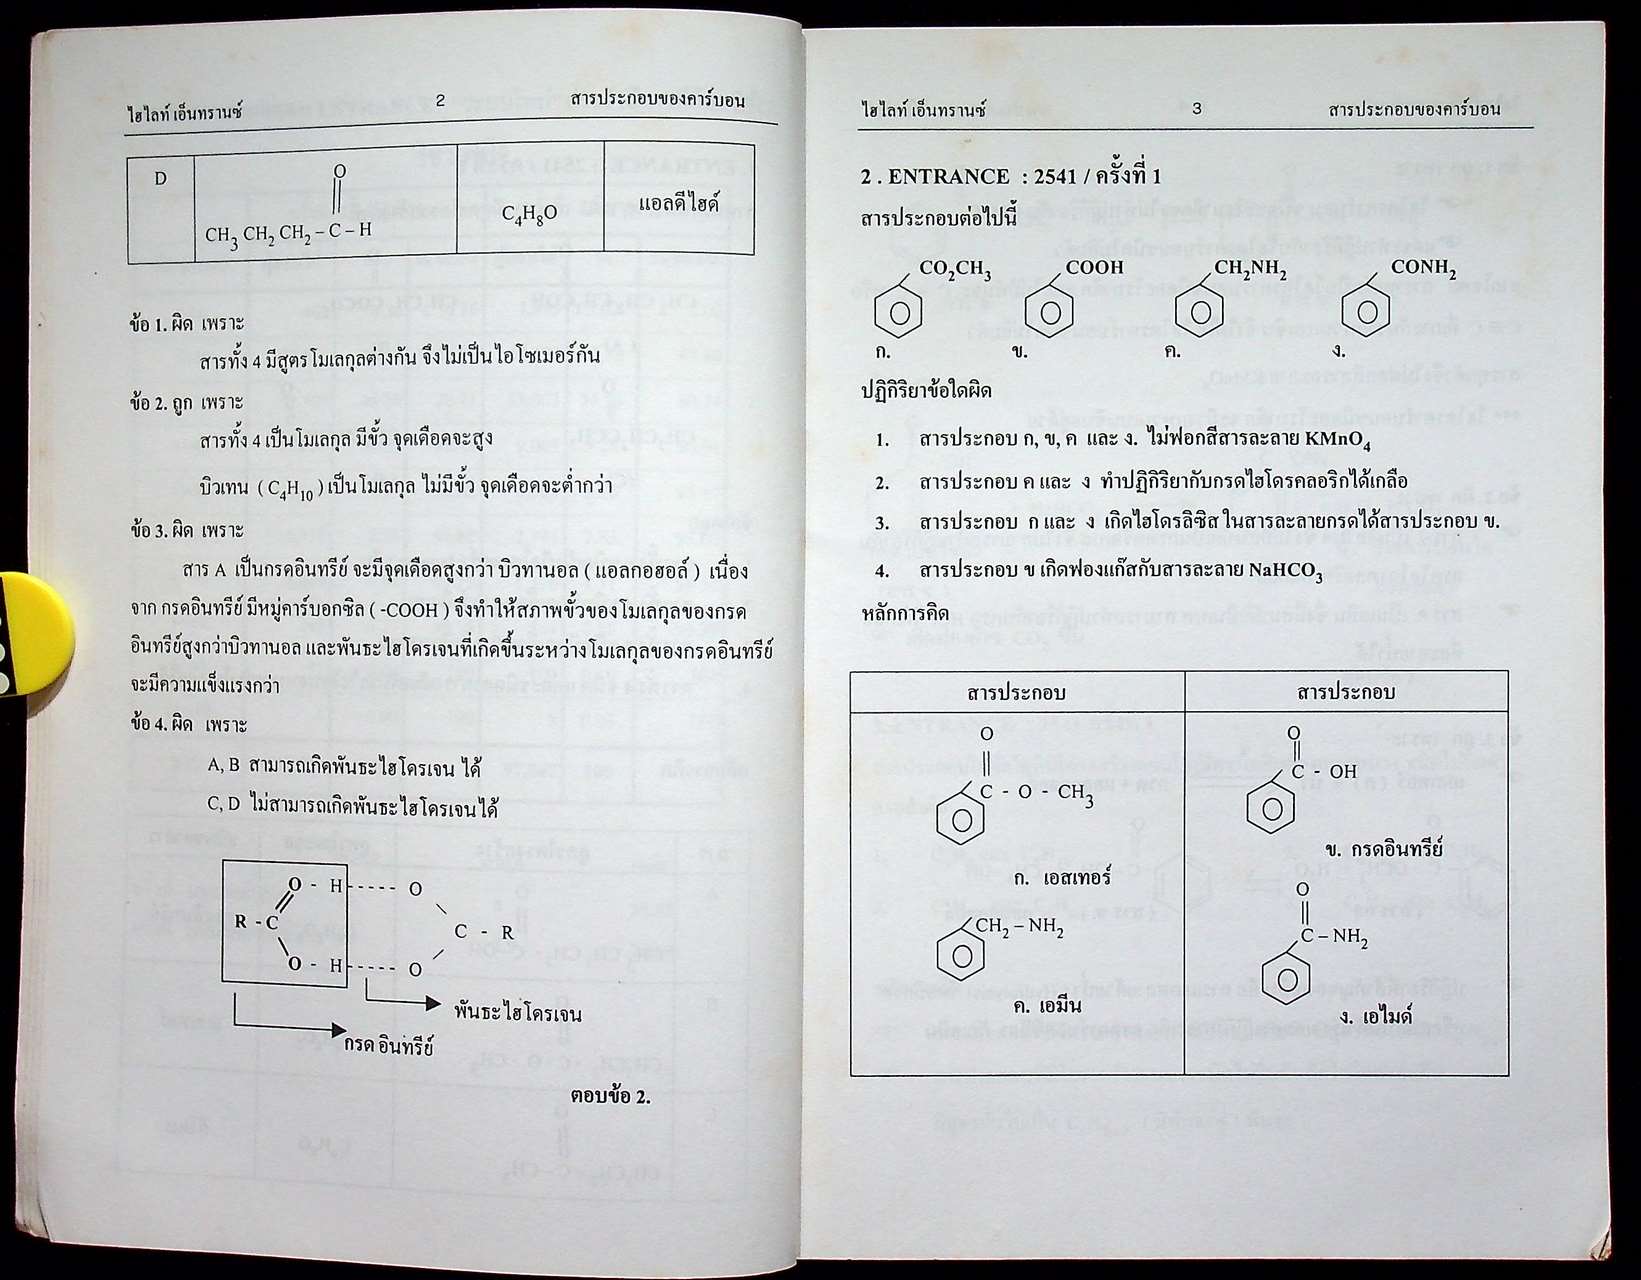 ไฮไลท์ เอ็นทรานซ์ 2 สารประกอบของคาร์บอน
D
O
CH3 CH2 CH2 – C – H
C4H8O
แอลดีไฮด์
ข้อ 1. ผิด เพราะ
สารทั้ง 4 มีสูตรโมเลกุลต่างกัน จึงไม่เป็นไอโซเมอร์กัน
ข้อ 2. ถูก เพราะ
สารทั้ง 4 เป็นโมเลกุล มีขั้ว จุดเดือดจะสูง
บิวเทน ( C4H10 ) เป็นโมเลกุล ไม่มีขั้ว จุดเดือดจะต่ำกว่า
ข้อ 3. ผิด เพราะ
สาร A เป็นกรดอินทรีย์ จะมีจุดเดือดสูงกว่า บิวทานอล ( แอลกอฮอล์ ) เนื่อง
จาก กรดอินทรีย์ มีหมู่คาร์บอกซิล ( -COOH ) จึงทำให้สภาพขั้วของโมเลกุลของกรด
อินทรีย์สูงกว่าบิวทานอล และพันธะไฮโดรเจนที่เกิดขึ้นระหว่างโมเลกุลของกรดอินทรีย์
จะมีความแข็งแรงกว่า
ข้อ 4. ผิด เพราะ
A, B สามารถเกิดพันธะไฮโดรเจน ได้
C, D ไม่สามารถเกิดพันธะไฮโดรเจนได้
O - H ----- O
R - C C - R
O - H ----- O
พันธะไฮโดรเจน
กรดอินทรีย์
ตอบข้อ 2.
ไฮไลท์ เอ็นทรานซ์ 3 สารประกอบของคาร์บอน
2 . ENTRANCE : 2541 / ครั้งที่ 1
สารประกอบต่อไปนี้
CO2CH3 COOH CH2NH2 CONH2
ก. ข. ค. ง.
ปฏิกิริยาข้อใดผิด
1. สารประกอบ ก, ข, ค และ ง. ไม่ฟอกสีสารละลาย KMnO4
2. สารประกอบ ค และ ง ทำปฏิกิริยากับกรดไฮโดรคลอริกได้เกลือ
3. สารประกอบ ก และ ง เกิดไฮโดรลิซิสในสารละลายกรดได้สารประกอบ ข.
4. สารประกอบ ข เกิดฟองแก๊สกับสารละลาย NaHCO3
หลักการคิด
สารประกอบ สารประกอบ
O
C - O - CH3
ก. เอสเทอร์
O
C - OH
ข. กรดอินทรีย์
CH2 – NH2
ค. เอมีน
O
C – NH2
ง. เอไมด์